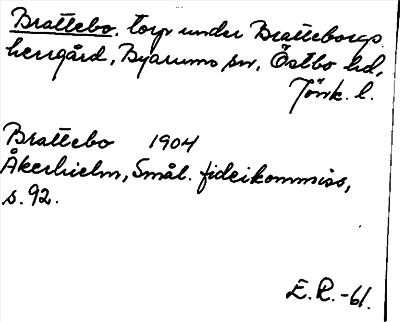 Brattebo, torp under Bratteborgs
herrgård, Byarums sn, Östbo hd,
Jönk. l.
Brattebo 1904
Åkerhielm, Smål. fideikommiss,
s. 92.
E. R. -61.